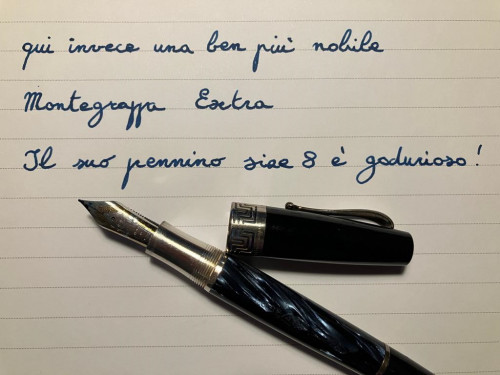 qui invece una ben più nobile
Montegrappa Extra
Il suo pennino size 8 è godurioso!